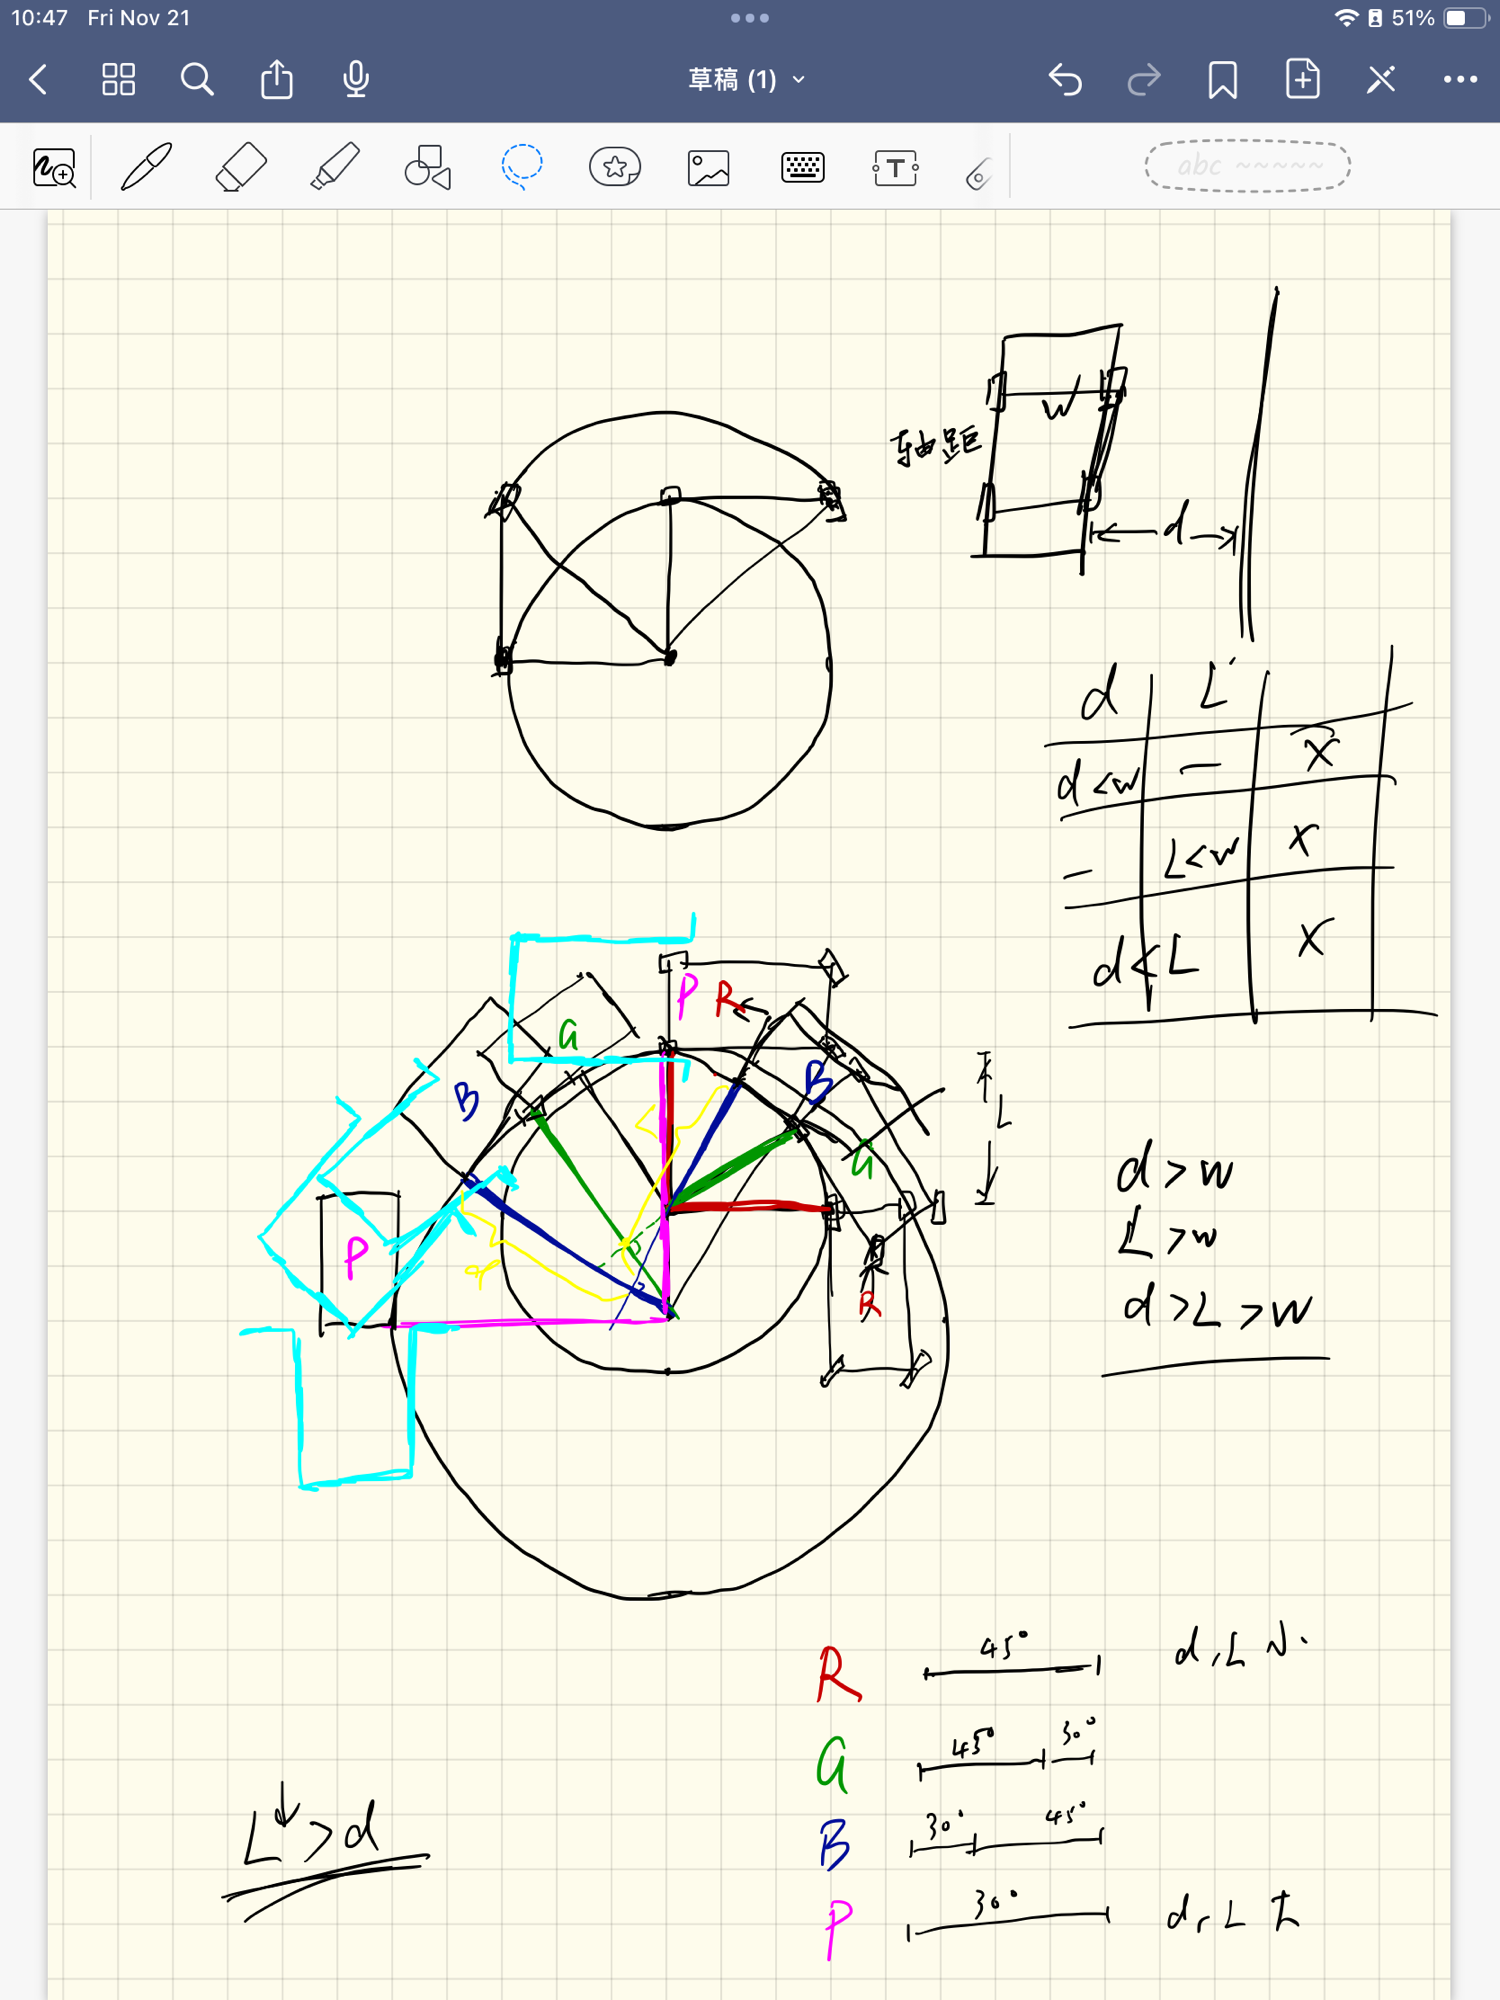 10:47 Fri Nov 21
51%
草稿 (1)
abc ~~~~~
T
轴距
W
d
d L
d<w — X
— L<w X
d<L X
P R
G
B
B
G
L
P
R
d>w
L>w
d>L>w
R 45° d,L 小.
G 45° 30°
B 30° 45°
L>d
P 30° d,L 大